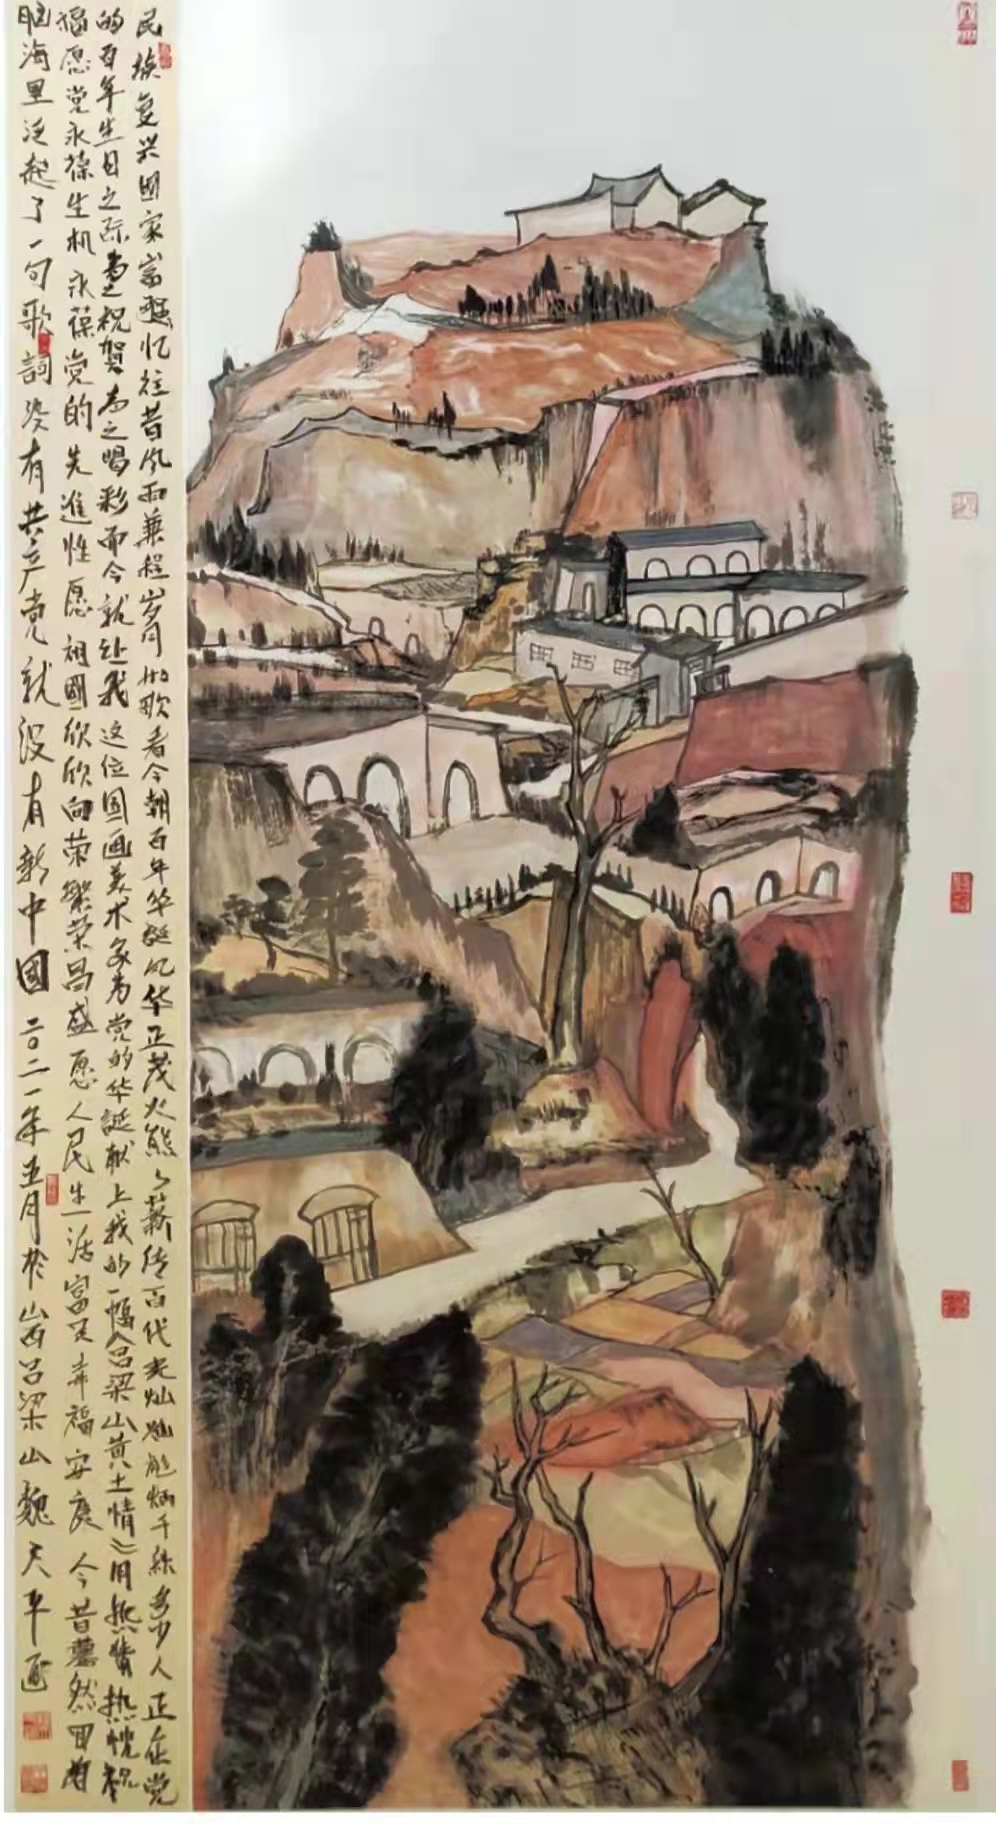 民族复兴国家富强忆往昔风雨兼程岁月如歌看今朝百年华诞风华正茂火熊々薪传百代光灿灿彪炳千秋多少人正在党
的百年生日之际为之祝贺为之喝彩而今就让我这位国画美术家为党的华诞献上我的一幅《吕梁山黄土情》用热情热忱祝
福愿党永葆生机永葆党的先進性愿祖國欣欣向荣繁荣昌盛愿人民生活富足幸福安康今昔蓦然回首
脑海里泛起了一句歌詞没有共产党就没有新中國二〇二一年五月於山西吕梁山魏天平画